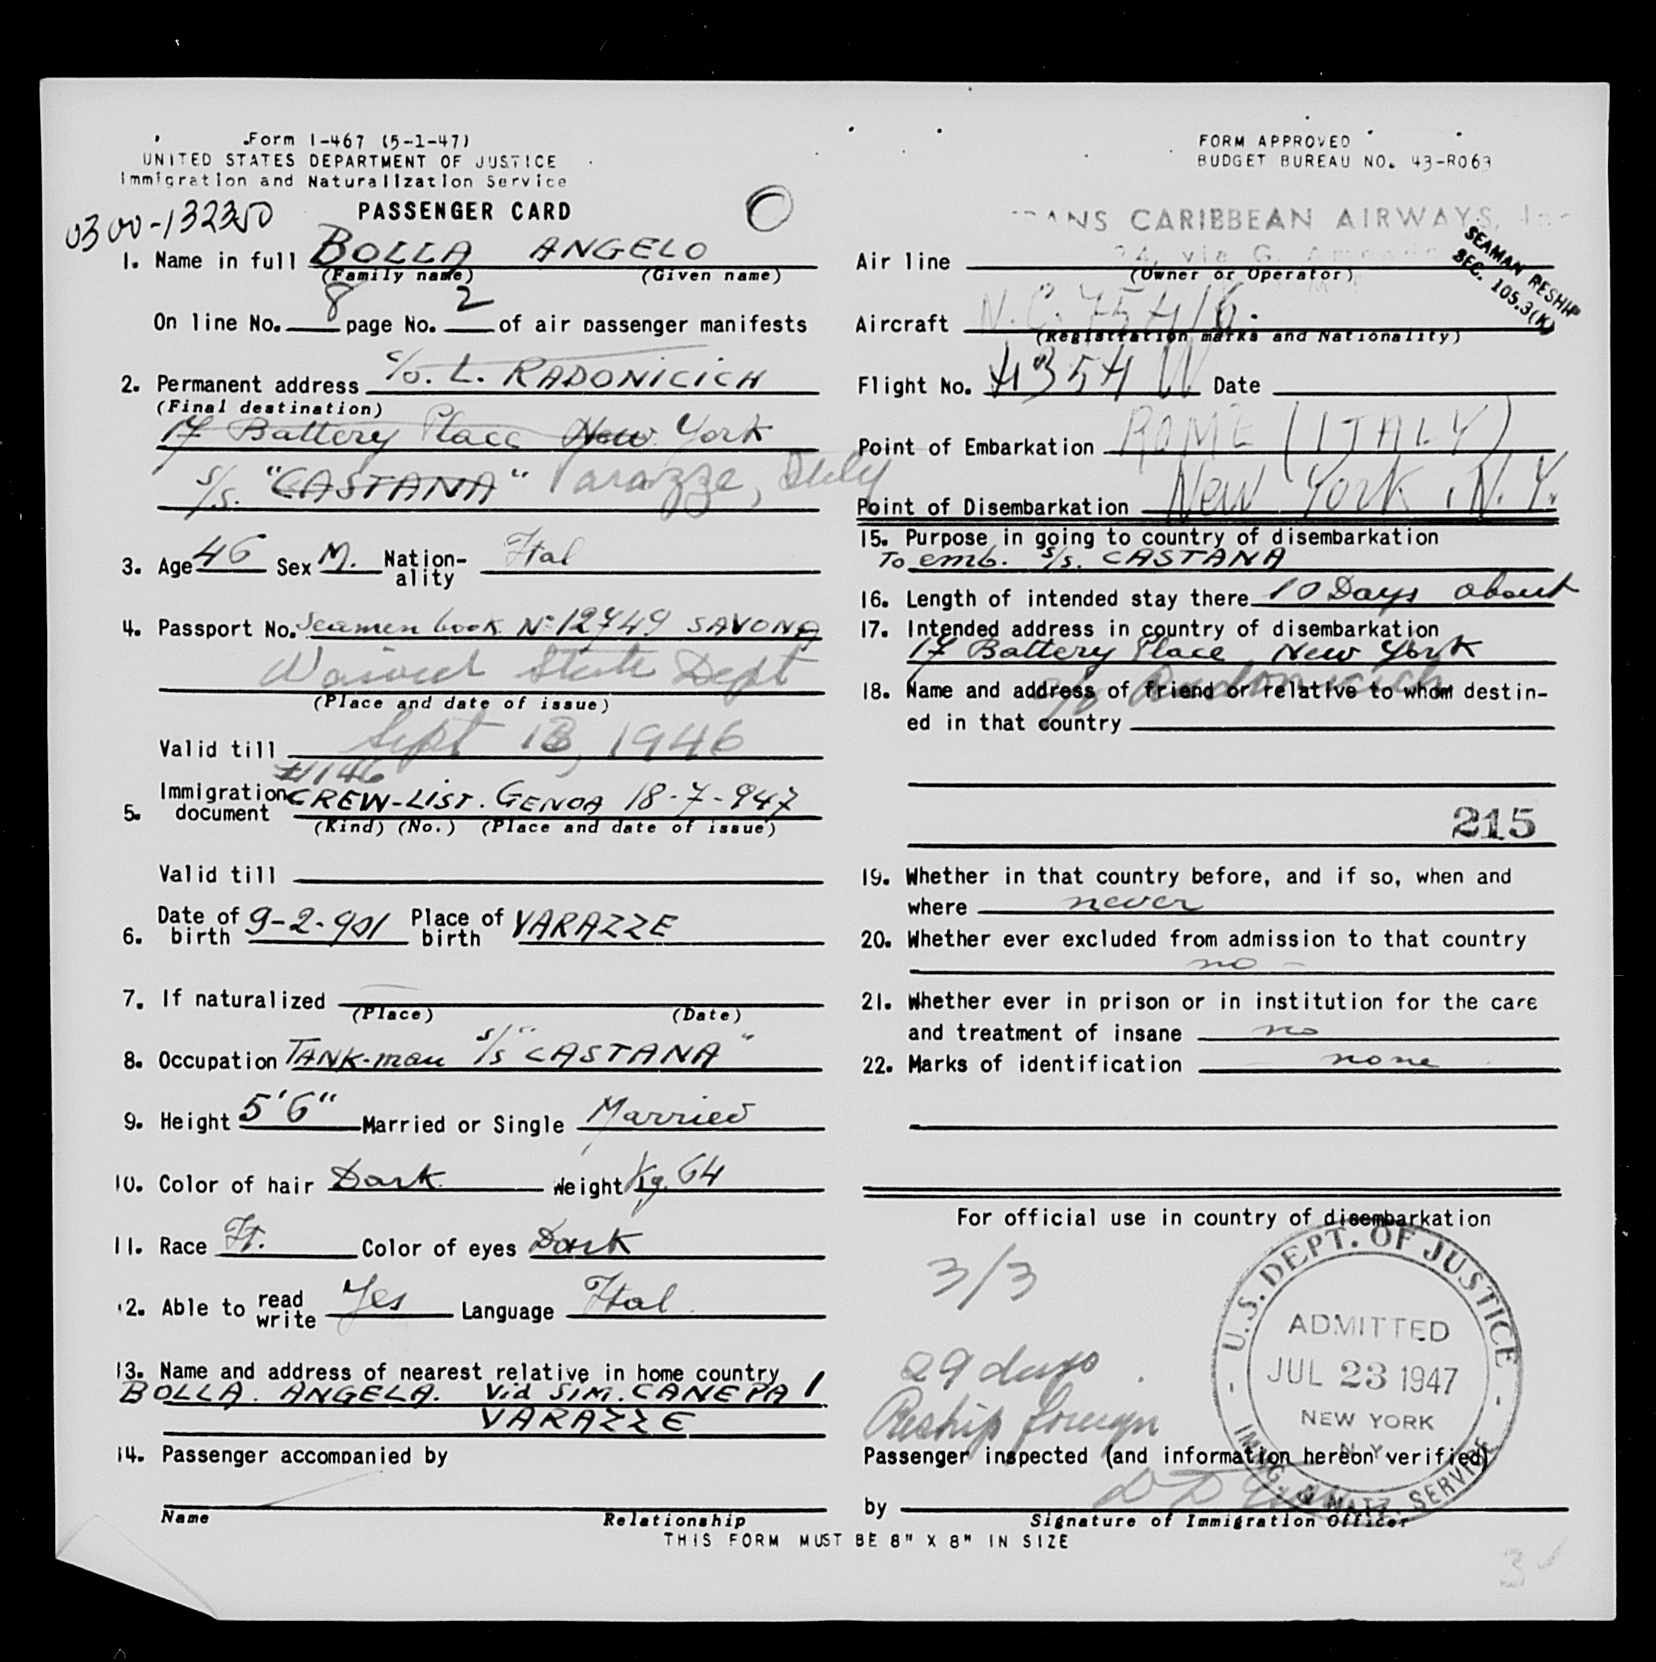 Form I-467 (5-1-47)
UNITED STATES DEPARTMENT OF JUSTICE
Immigration and Naturalization Service
FORM APPROVED
BUDGET BUREAU NO. 43-R063
0300-132350
PASSENGER CARD
1. Name in full BOLLA ANGELO
(Family name) (Given name)
On line No. 8 page No. 2 of air passenger manifests
2. Permanent address c/o. L. RADONICICH
(Final destination)
17 Battery Place New York
s/s. "CASTANA" Varazze, Italy
3. Age 46 Sex M. Nation-ality Ital
4. Passport No. Seamen book No 12749 SAVONA
Waived State Dept
(Place and date of issue)
Valid till Sept 13, 1946
#1146
5. Immigration document CREW-LIST. GENOA 18-7-947
(Kind) (No.) (Place and date of issue)
Valid till
6. Date of birth 9-2-901 Place of birth VARAZZE
7. If naturalized
(Place) (Date)
8. Occupation TANK-man s/s "CASTANA"
9. Height 5'6" Married or Single Married
10. Color of hair Dark Weight Kg. 64
11. Race It. Color of eyes Dark
12. Able to read write Yes Language Ital
13. Name and address of nearest relative in home country
BOLLA. ANGELA. Via SIM. CANEPA 1
VARAZZE
14. Passenger accompanied by
Name Relationship
TRANS CARIBBEAN AIRWAYS, Inc
24, via G.
Air line
(Owner or Operator)
SEAMAN RESHIP
SEC. 105.3(K)
Aircraft N.C. 75416.
(Registration marks and Nationality)
Flight No. 4354 W Date
Point of Embarkation ROME (ITALY)
Point of Disembarkation New York, N.Y.
15. Purpose in going to country of disembarkation
To emb. s/s. CASTANA
16. Length of intended stay there 10 Days about
17. Intended address in country of disembarkation
17 Battery Place New York
c/o Radonicich
18. Name and address of friend or relative to whom destin-
ed in that country
215
19. Whether in that country before, and if so, when and
where never
20. Whether ever excluded from admission to that country
no -
21. Whether ever in prison or in institution for the care
and treatment of insane no
22. Marks of identification none
For official use in country of disembarkation
3/3
29 days
Reship foreign
U.S. DEPT. OF JUSTICE
ADMITTED
JUL 23 1947
NEW YORK
N.Y.
IMMIG. & NATZ. SERVICE
Passenger inspected (and information hereon verified)
by
Signature of Immigration Officer
THIS FORM MUST BE 8" X 8" IN SIZE
3